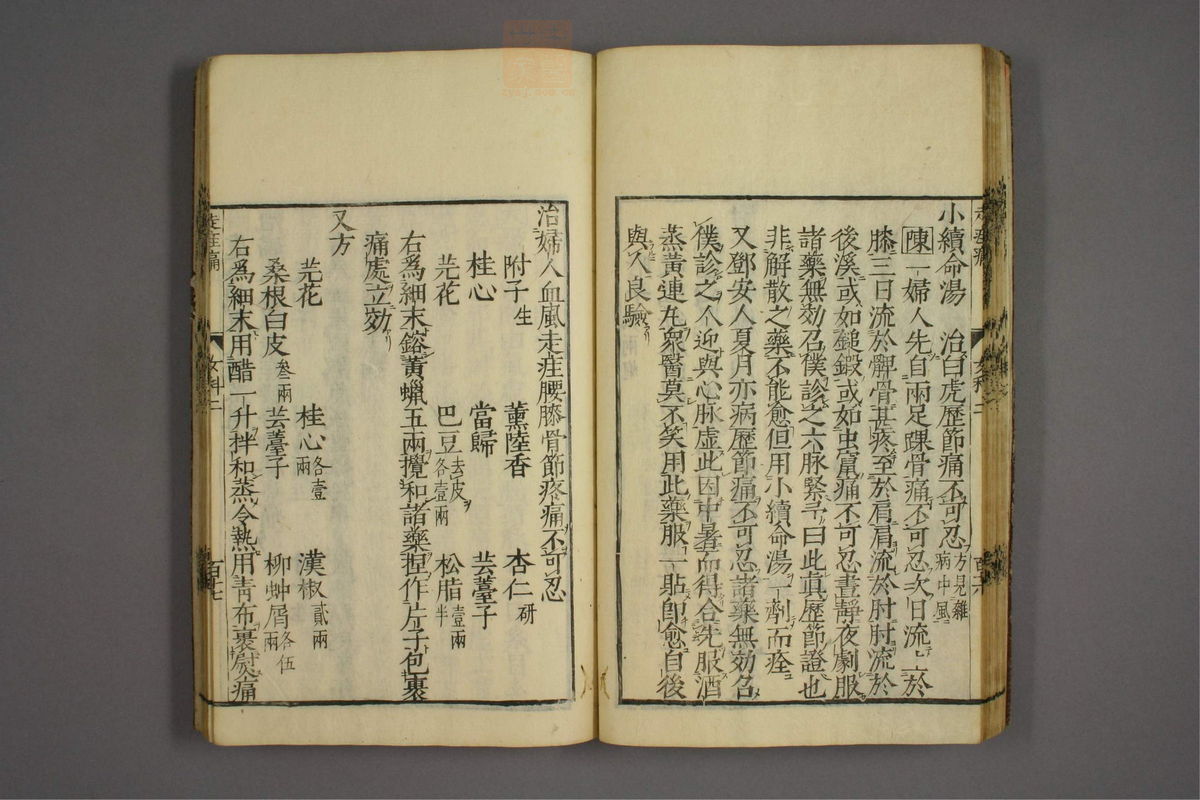 小續命湯 治白虎歷節痛不可忍方見雜病中風
陳一婦人先自兩足踝骨痛不可忍次日流上於
膝三日流於髀骨甚疼至於肩肩流於肘肘流於
後溪或如鎚鍛或如虫窟痛不可忍晝靜夜劇服
諸藥無効召僕診之六脉緊予曰此真歷節證也
非解散之藥不能愈但用小續命湯一劑而痊
又鄧安人夏月亦病歷節痛不可忍諸藥無効召
僕診之人迎與心脉虛此因中暑而得合先服酒
蒸黃連丸衆醫莫不笑用此藥服一貼即愈自後
與人良驗
女科二
百十六
治婦人血風走疰腰膝骨節疼痛不可忍
附子生 薰陸香 杏仁研
桂心 當歸 芸薹子
芫花 巴豆去皮各壹兩 松脂壹兩半
右爲細末鎔黃蠟五兩攪和諸藥捏作片子包裹
痛處立効
又方
芫花 桂心各壹兩 漢椒貳兩
桑根白皮叁兩 芸薹子 柳蚛屑各伍兩
右爲細末用醋一升拌和蒸令熱用靑布裹熨痛
走疰痛
女科二
百十七